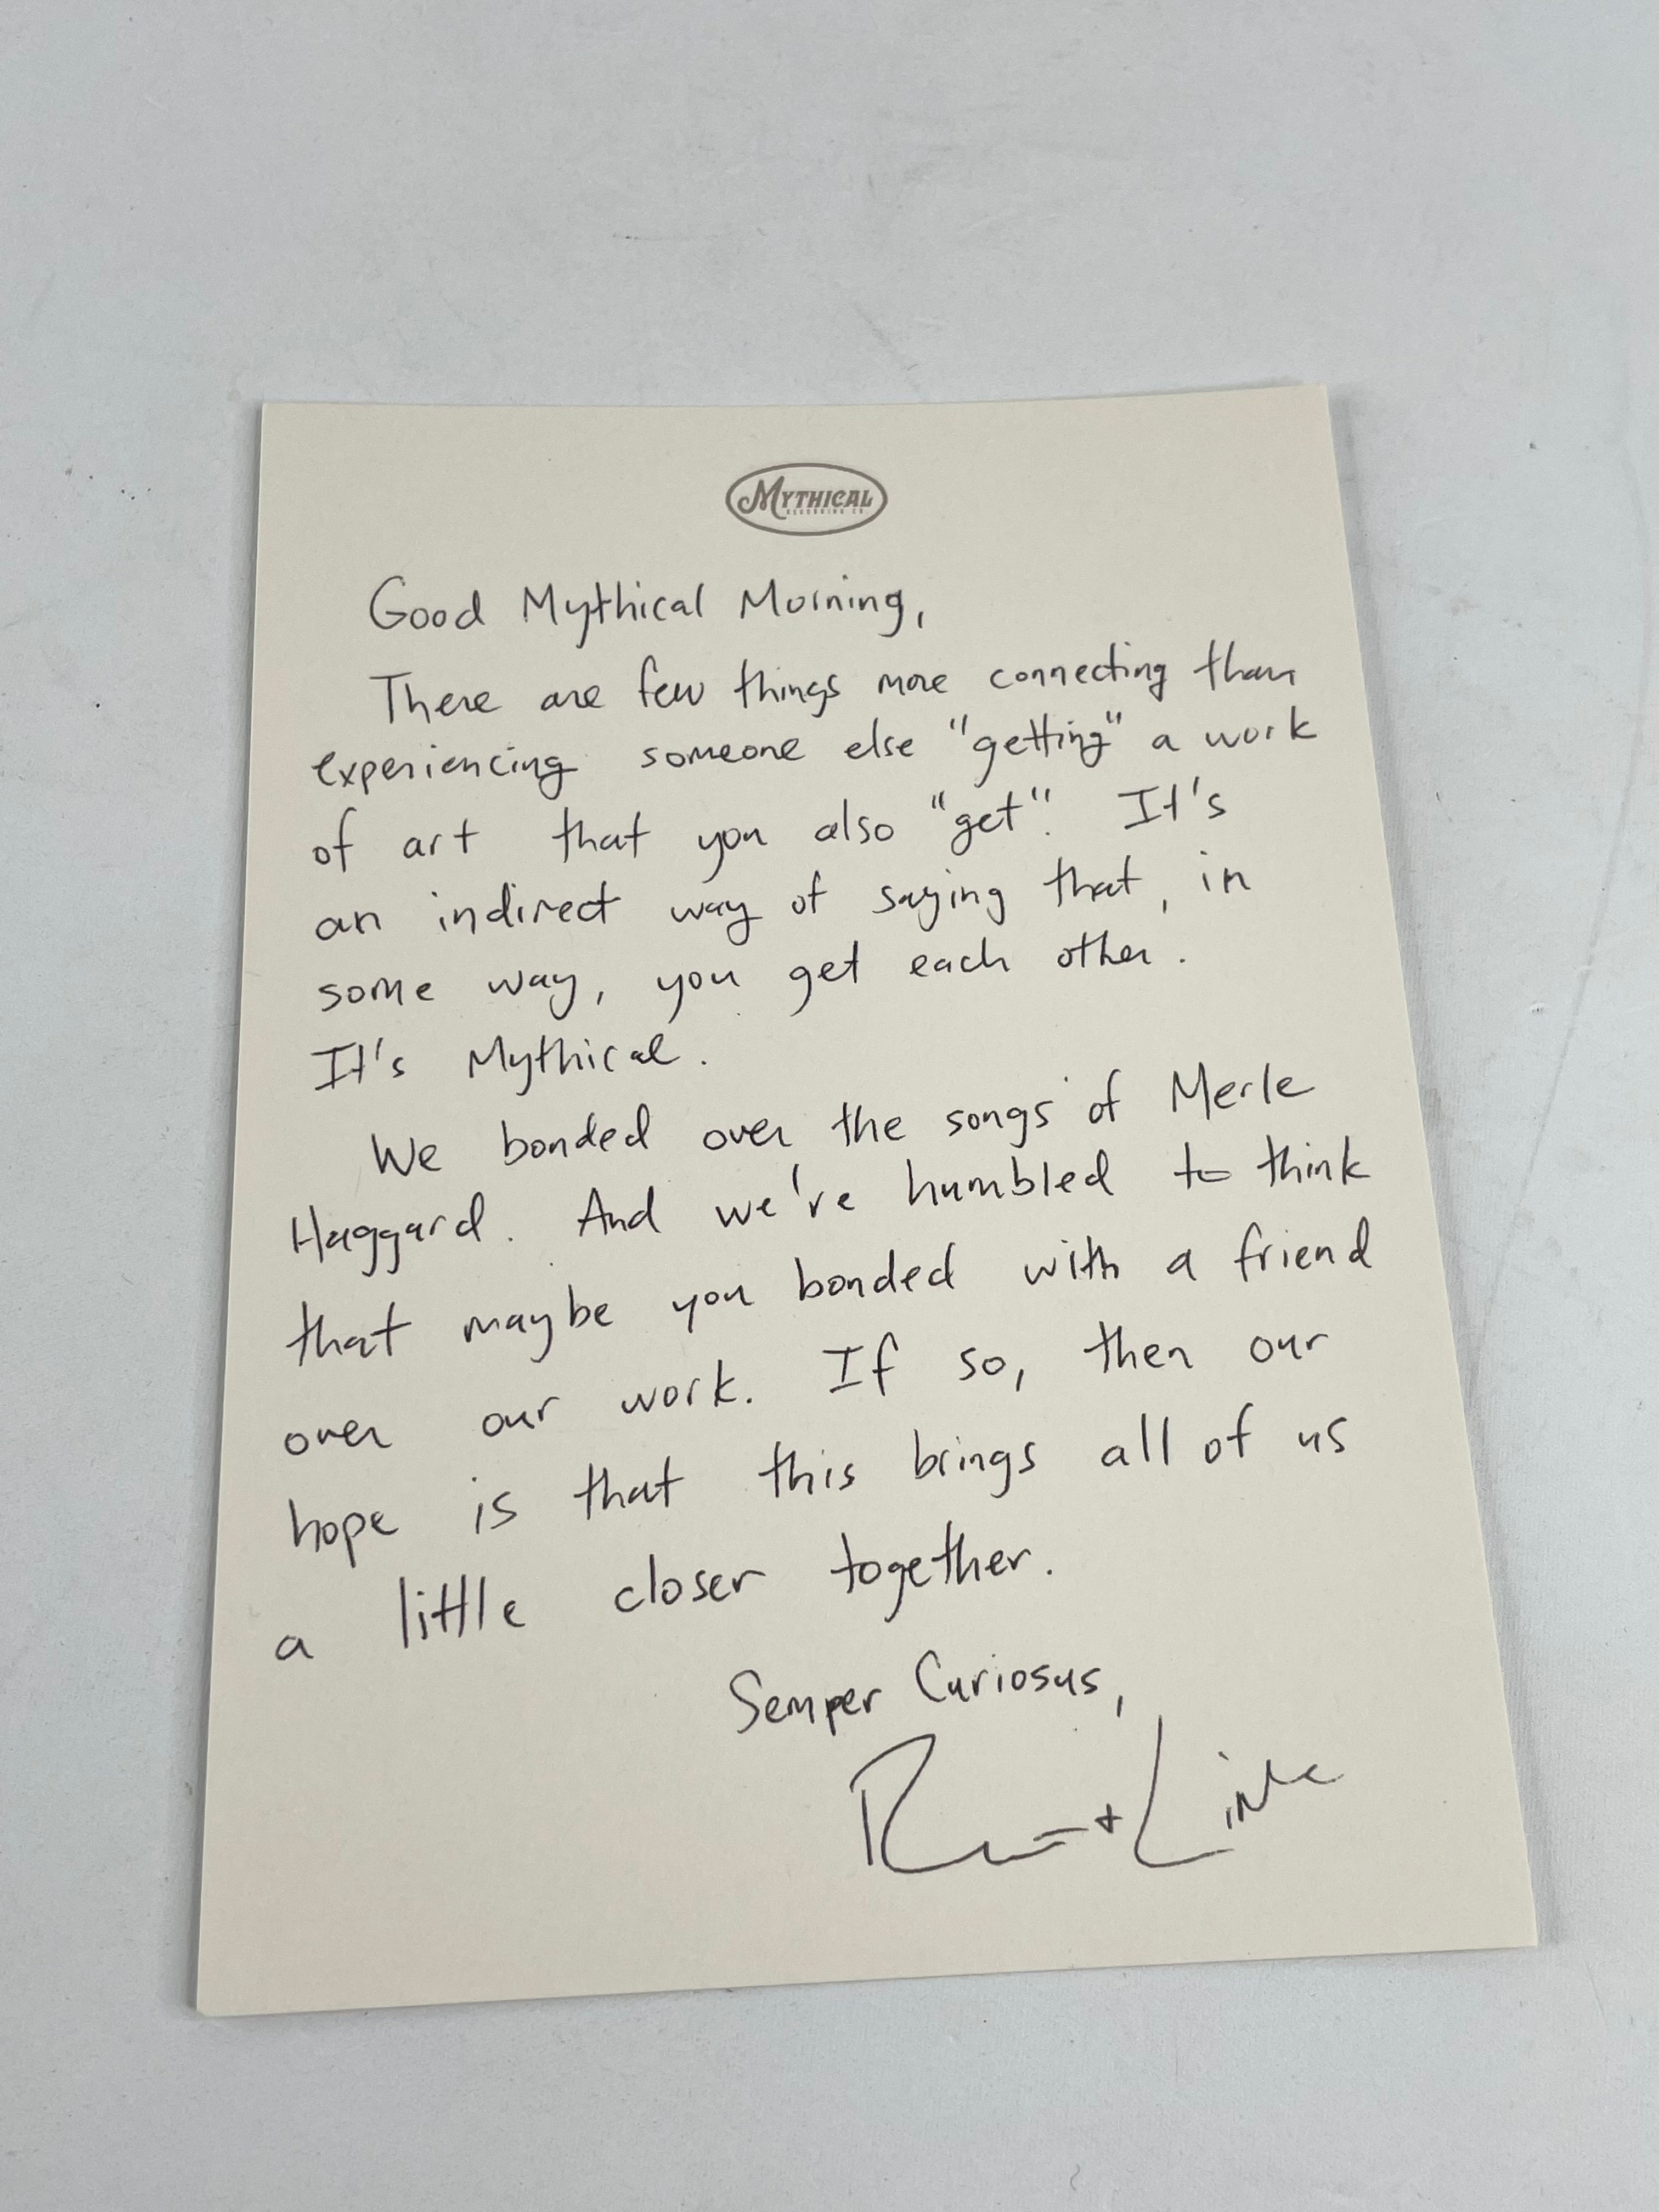 MYTHICAL
RECORDING CO.
Good Mythical Morning,
There are few things more connecting than
experiencing someone else "getting" a work
of art that you also "get". It's
an indirect way of saying that, in
some way, you get each other.
It's Mythical.
We bonded over the songs of Merle
Haggard. And we're humbled to think
that maybe you bonded with a friend
over our work. If so, then our
hope is that this brings all of us
a little closer together.
Semper Curiosus,
Rhett + Link